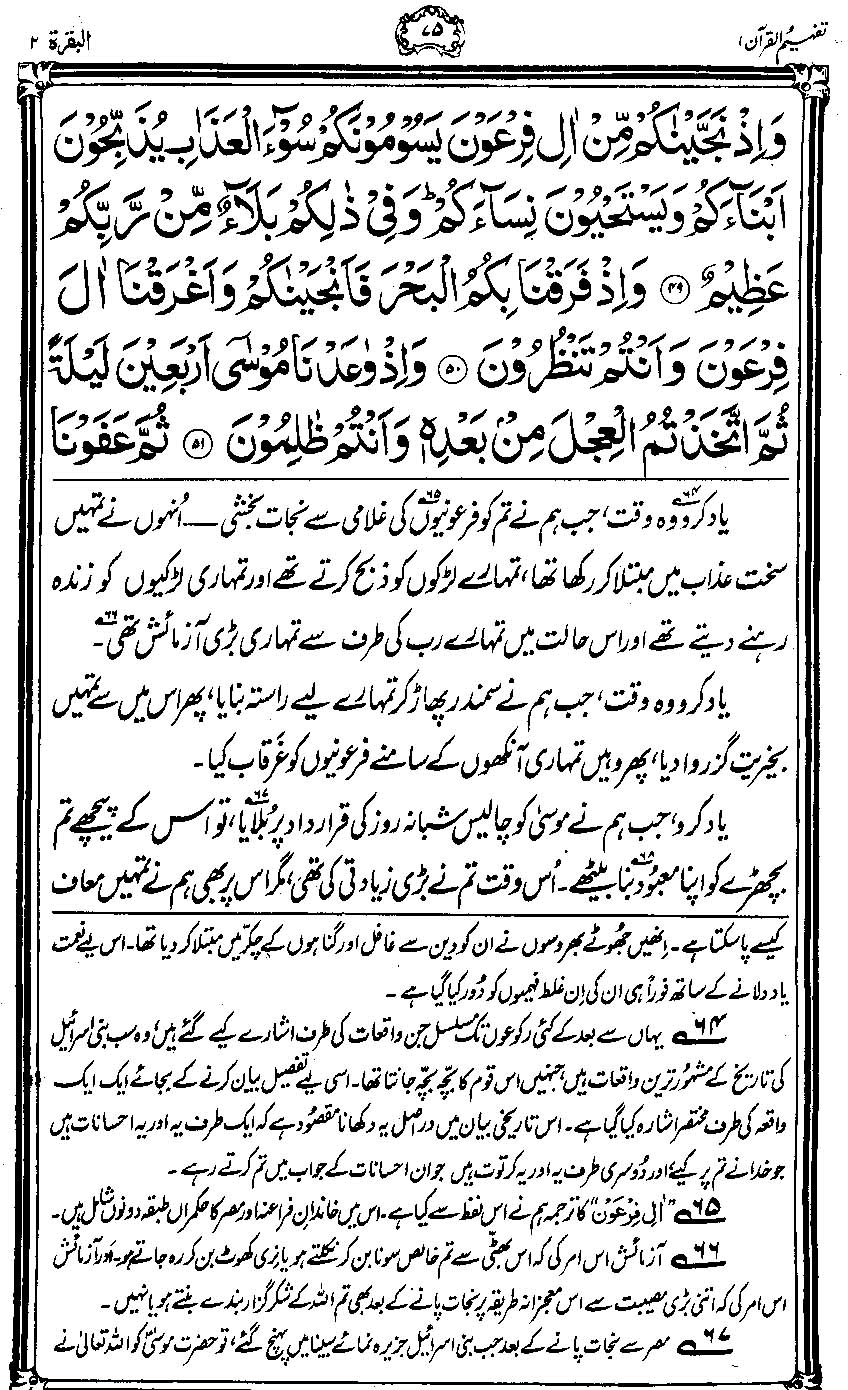 تفہیم القرآن ۱
۷۵
البقرۃ ۲
وَاِذْ نَجَّيْنٰكُمْ مِّنْ اٰلِ فِرْعَوْنَ يَسُوْمُوْنَكُمْ سُوْٓءَ الْعَذَابِ يُذَبِّحُوْنَ
اَبْنَآءَكُمْ وَيَسْتَحْيُوْنَ نِسَآءَكُمْ ؕ وَفِيْ ذٰلِكُمْ بَلَآءٌ مِّنْ رَّبِّكُمْ
عَظِيْمٌ ﴿۴۹﴾ وَاِذْ فَرَقْنَا بِكُمُ الْبَحْرَ فَاَنْجَيْنٰكُمْ وَاَغْرَقْنَآ اٰلَ
فِرْعَوْنَ وَاَنْتُمْ تَنْظُرُوْنَ ﴿۵۰﴾ وَاِذْ وٰعَدْنَا مُوْسٰٓى اَرْبَعِيْنَ لَيْلَةً
ثُمَّ اتَّخَذْتُمُ الْعِجْلَ مِنْۢ بَعْدِهٖ وَاَنْتُمْ ظٰلِمُوْنَ ﴿۵۱﴾ ثُمَّ عَفَوْنَا
یاد کرو۶۴ وہ وقت، جب ہم نے تم کو فرعونیوں۶۵ کی غلامی سے نجات بخشی — اُنہوں نے تمہیں
سخت عذاب میں مبتلا کر رکھا تھا، تمہارے لڑکوں کو ذبح کرتے تھے اور تمہاری لڑکیوں کو زندہ
رہنے دیتے تھے اور اس حالت میں تمہارے رب کی طرف سے تمہاری بڑی آزمائش تھی۶۶۔
یاد کرو وہ وقت، جب ہم نے سمندر پھاڑ کر تمہارے لیے راستہ بنایا، پھر اس میں سے تمہیں
بخیریت گزروا دیا، پھر وہیں تمہاری آنکھوں کے سامنے فرعونیوں کو غرقاب کیا۔
یاد کرو، جب ہم نے موسیٰ کو چالیس شبانہ روز کی قرارداد پر بُلایا۶۷، تو اس کے پیچھے تم
بچھڑے کو اپنا معبود۶۸ بنا بیٹھے۔ اُس وقت تم نے بڑی زیادتی کی تھی، مگر اس پر بھی ہم نے تمہیں معاف
کیسے پا سکتا ہے۔ انھیں جھوٹے بھروسوں نے ان کو دین سے غافل اور گناہوں کے چکر میں مبتلا کر دیا تھا۔ اس لیے نعمت
یاد دلانے کے ساتھ فوراً ہی ان کی اِن غلط فہمیوں کو دُور کیا گیا ہے۔
۶۴ یہاں سے بعد کے کئی رکوعوں تک مسلسل جن واقعات کی طرف اشارے کیے گئے ہیں، وہ سب بنی اسرائیل
کی تاریخ کے مشہور ترین واقعات ہیں، جنہیں اس قوم کا بچہ بچہ جانتا تھا۔ اسی لیے تفصیل بیان کرنے کے بجائے ایک ایک
واقعہ کی طرف مختصر اشارہ کیا گیا ہے۔ اس تاریخی بیان میں دراصل یہ دکھانا مقصود ہے کہ ایک طرف یہ اور یہ احسانات ہیں
جو خدا نے تم پر کیے، اور دُوسری طرف یہ اور یہ کرتوت ہیں جو ان احسانات کے جواب میں تم کرتے رہے۔
۶۵ ”اٰلِ فِرْعَوْنَ“ کا ترجمہ ہم نے اس لفظ سے کیا ہے۔ اس میں خاندانِ فراعنہ اور مصر کا حکمراں طبقہ دونوں شامل ہیں۔
۶۶ آزمائش اس امر کی کہ اس بھٹّی سے تم خالص سونا بن کر نکلتے ہو یا نِری کھوٹ بن کر رہ جاتے ہو۔ اور آزمائش
اس امر کی کہ اتنی بڑی مصیبت سے اس معجزانہ طریقہ پر نجات پانے کے بعد بھی تم اللہ کے شکر گزار بندے بنتے ہو یا نہیں۔
۶۷ مصر سے نجات پانے کے بعد جب بنی اسرائیل جزیرہ نمائے سینا میں پہنچ گئے، تو حضرت موسیٰؑ کو اللہ تعالیٰ نے